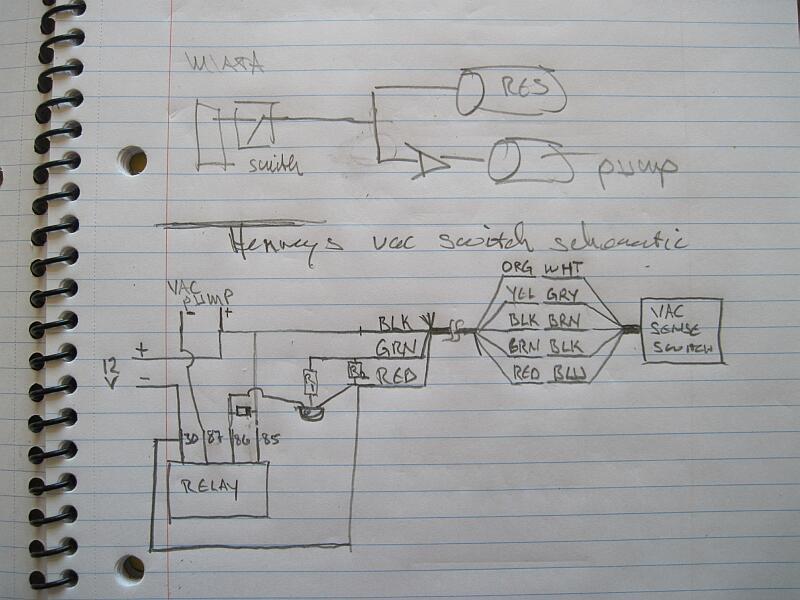 MIATA
RES
switch
pump
Henneys vac switch schematic
VAC
PUMP
- +
ORG WHT
YEL GRY
BLK BRN
BRN BLK
RED BLU
VAC
SENSE
SWITCH
BLK
GRN
RED
12
V
+
-
R1
30 87 86 85
RELAY